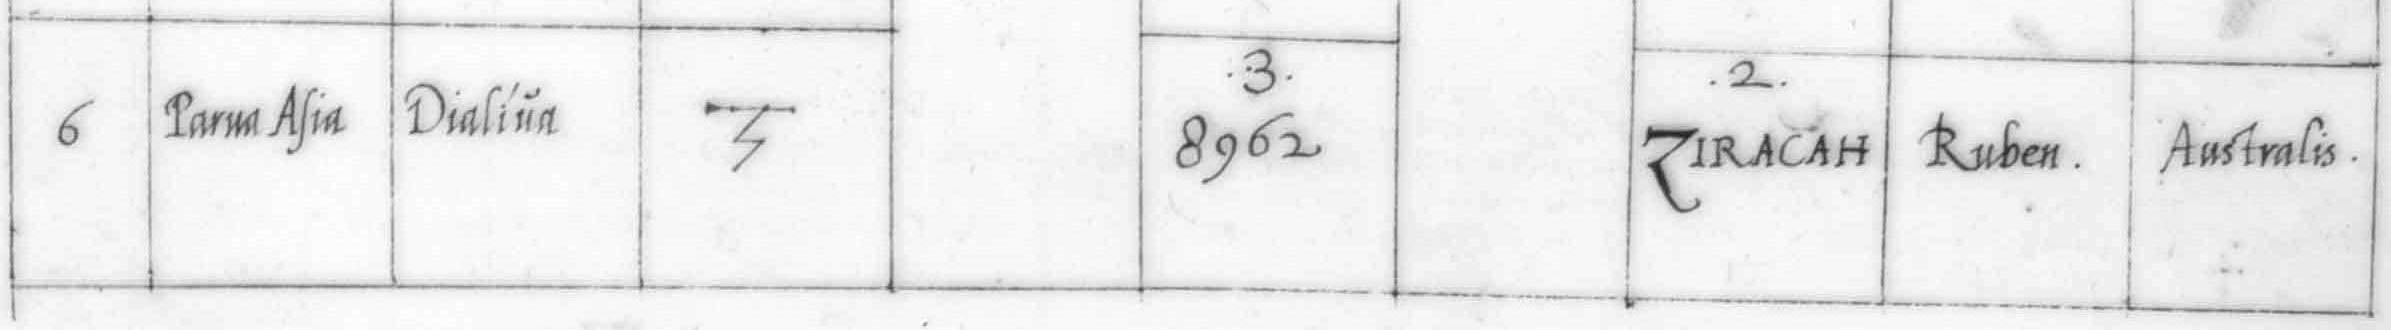 6
Parua Asia
Dialiua
.3.
8962
.2.
ZIRACAH
Ruben.
Australis.